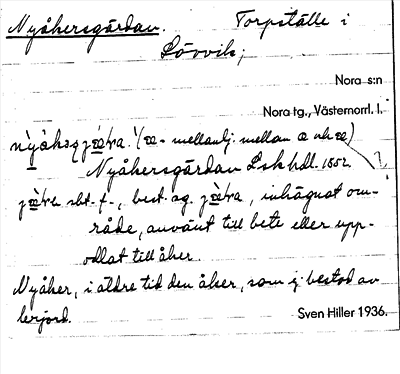 Nyåkersgårdan. Torpställe i
Lövvik;
Nora s:n
Nora tg., Västernorrl. l.
(æ- mellanlj. mellan a och æ)
Nyåkersgårdan Lskhdl. 1852. ?
sbt. f., best. sg. inhägnat om-
råde, använt till bete eller upp-
odlat till åker.
Nyåker, i äldre tid den åker, som ej bestod av
lerjord.
Sven Hiller 1936.